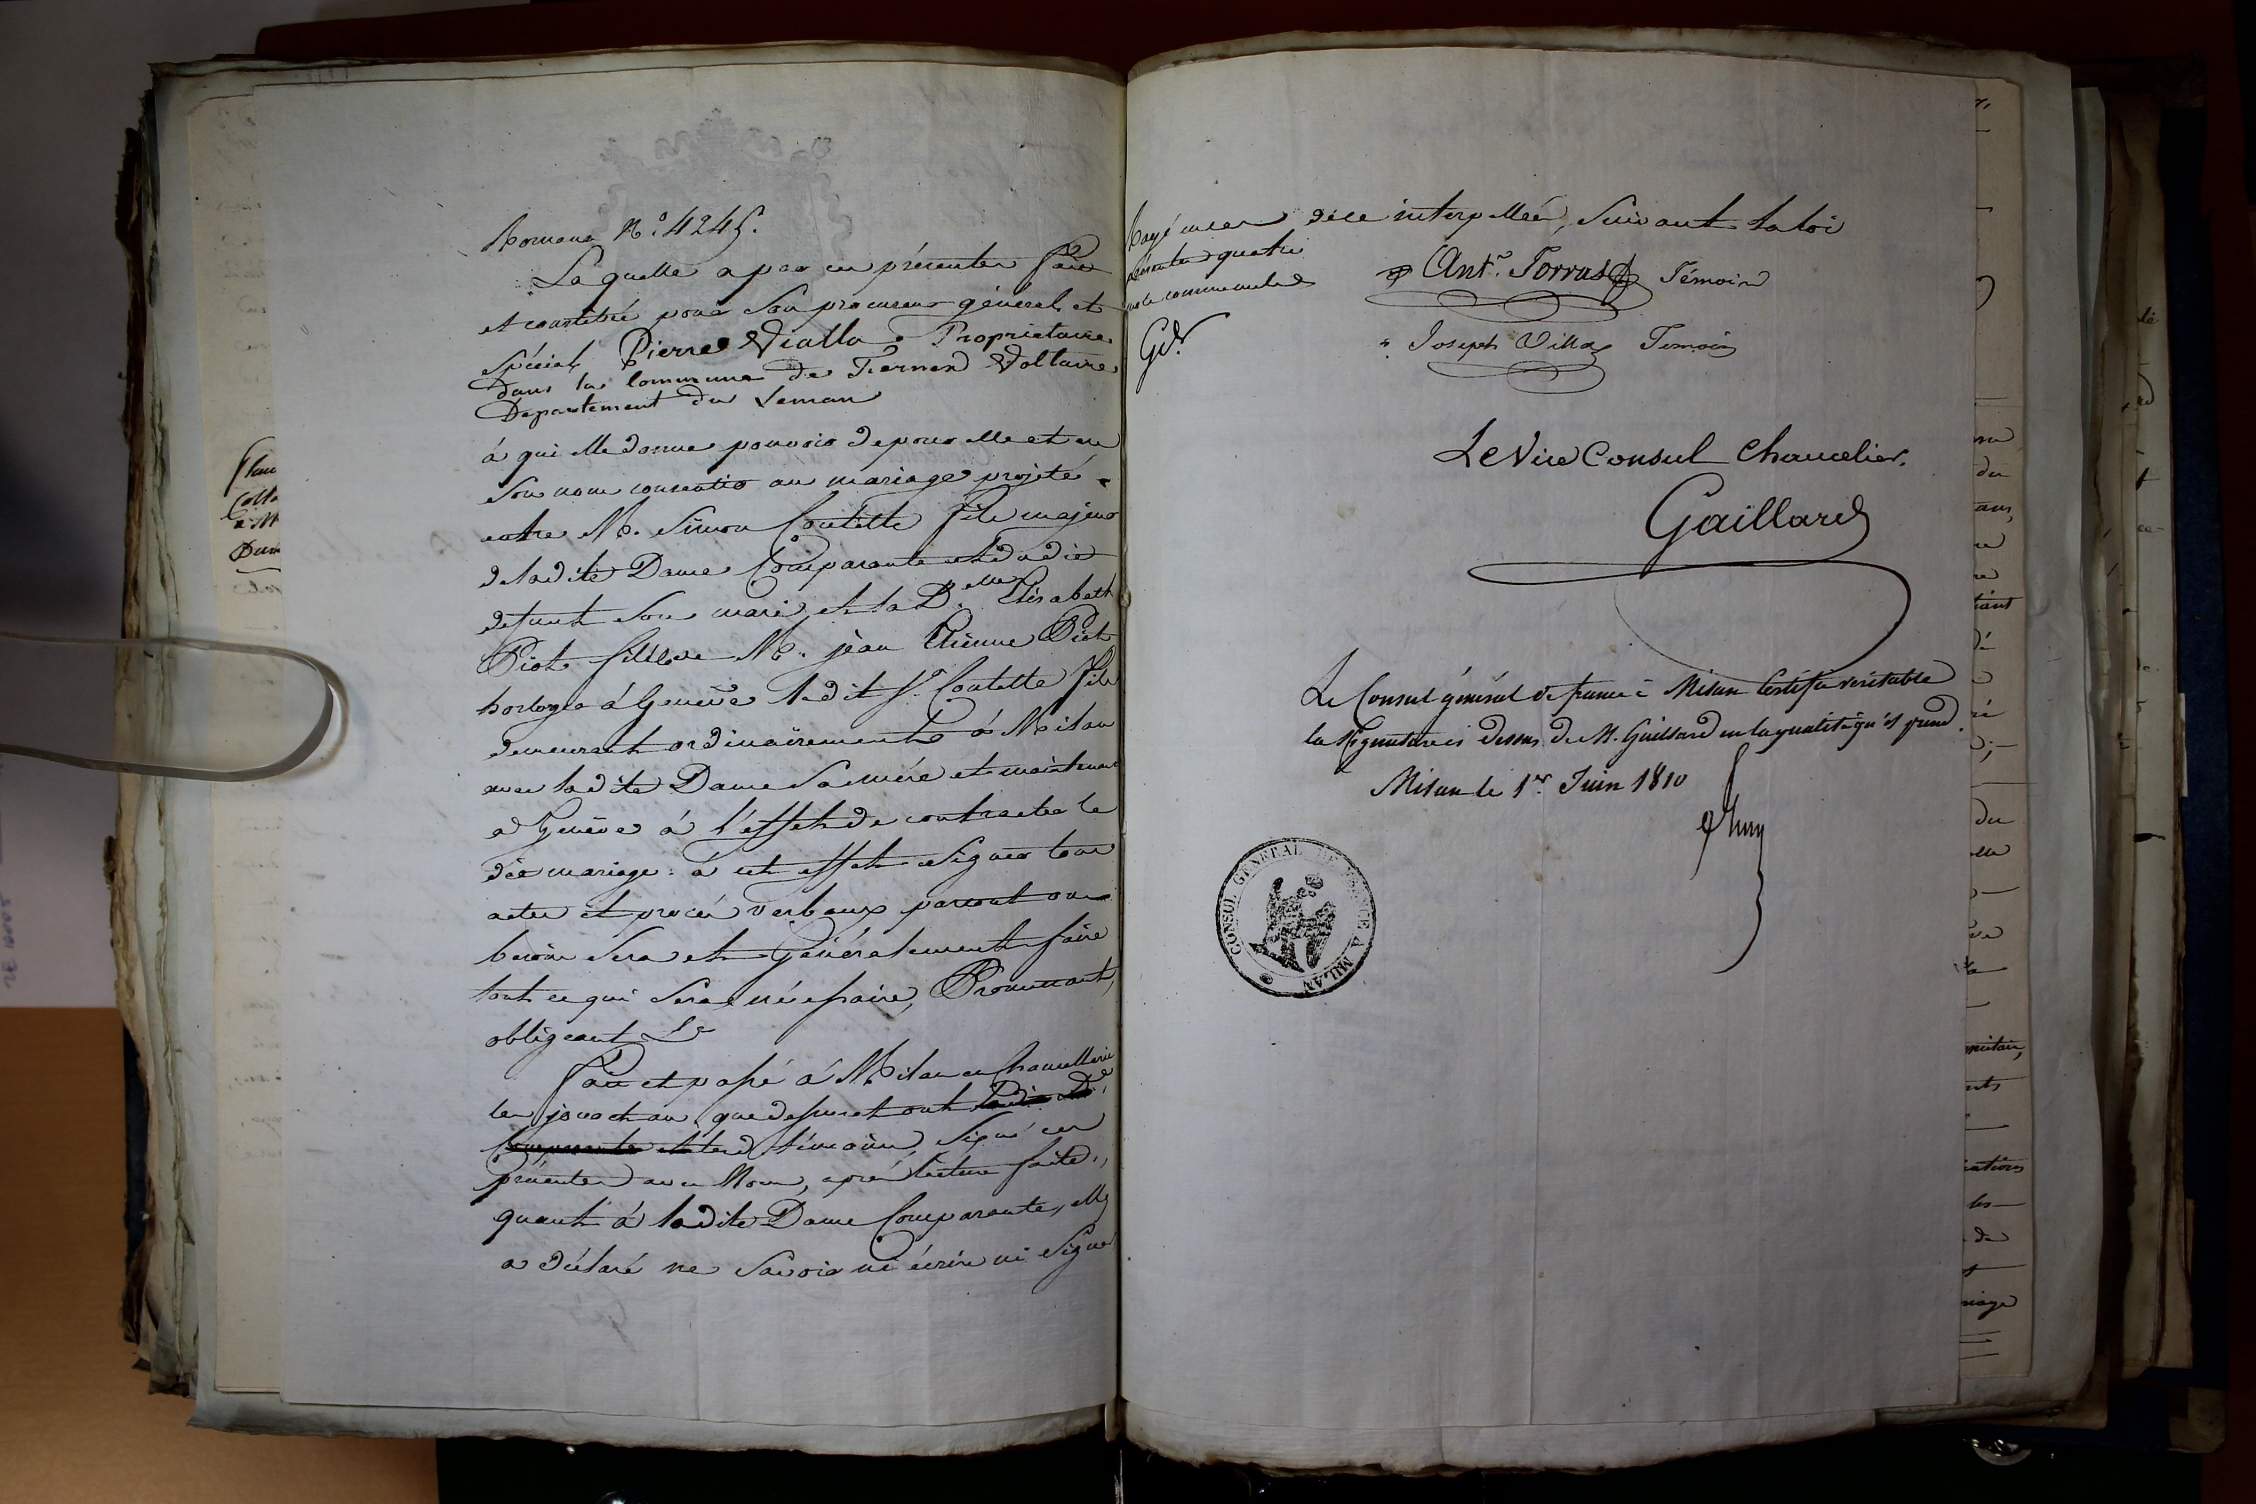 Romana N.º 4245.
La quelle a par ces présentes fait
et constitué pour son procureur général et
spécial Pierre Vialla Proprietaire
dans la commune de Fernex Voltaire
Departement du Leman
à qui elle donne pouvoir de pour elle et en
son nom consentir au mariage projeté
entre M. Simon Coutelle fils majeur
de ladite Dame Comparante et du dit
defunt son mari et la D.elle Elisabeth
Piot fille de M. jean Etienne Piot
horloger à Genève ledit Sr. Coutelle fils
demeurant ordinairement à Milan
avec ladite Dame sa mère et maintenant
a Genève à l'effet de contracter le
dit mariage: à cet effet signer tous
actes et procès verbaux partout où
besoin sera et Généralement faire
tout ce qui sera nécessaire, Promettant,
obligeant &c
Fait et passé à Milan en Chancellerie
les jour et an que dessus et ont ladite De
Comparante et les témoins, signé ces
présentes avec Nous, après lecture faite,
quant à ladite Dame Comparante, elle
a déclaré ne savoir ni écrire ni signer
de ce interpellée, suivant la loi
Rayé
quatre
Gd.
Ant.º Torras Témoin
Joseph Villa Temoin
Le Vice Consul Chancelier.
Gaillard
Le Consul général de france à Milan Certifie véritable
la Signature ci dessus de M. Gaillard en la qualité qu'il prend.
Milan le 1er. Juin 1810
CONSUL GÉNÉRAL DE FRANCE A MILAN